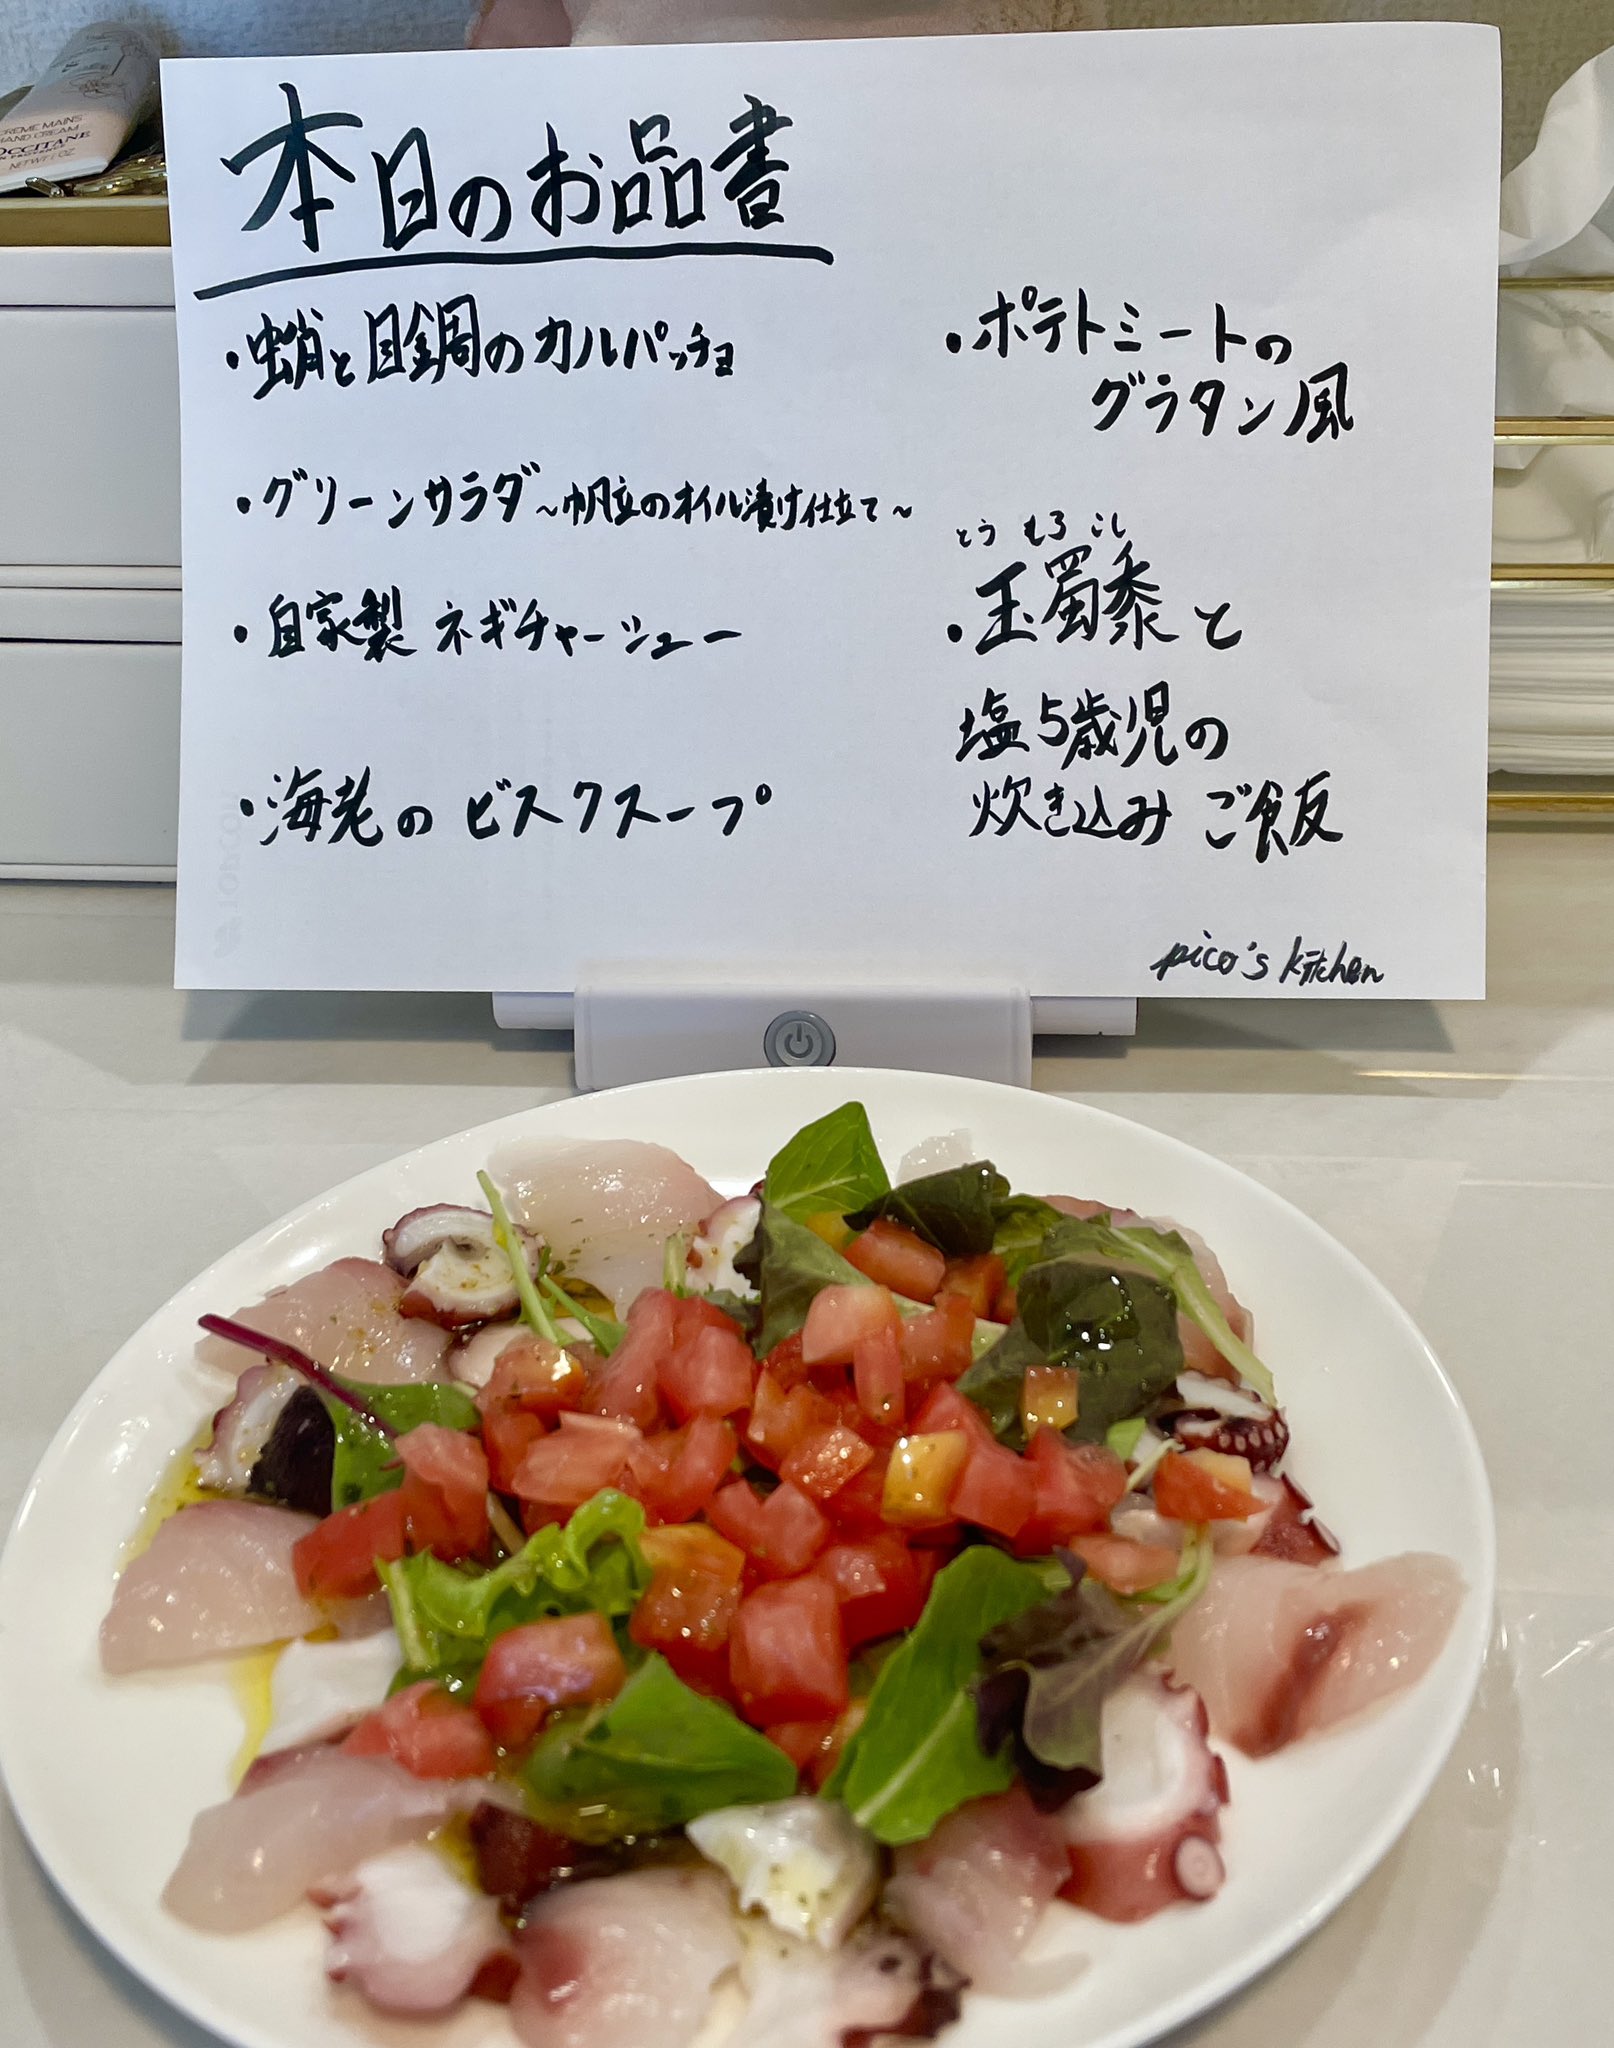 本日のお品書
・蛸と目鯛のカルパッチョ
・グリーンサラダ~帆立のオイル漬け仕立て~
・自家製 ネギチャーシュー
・海老の ビスクスープ
・ポテトミートの
グラタン風
とうもろこし
・玉蜀黍と
塩5歳児の
炊き込み ご飯
pico's kitchen
CREME MAINS
HAND CREAM
L'OCCITANE
EN PROVENCE
NET WT 1 OZ